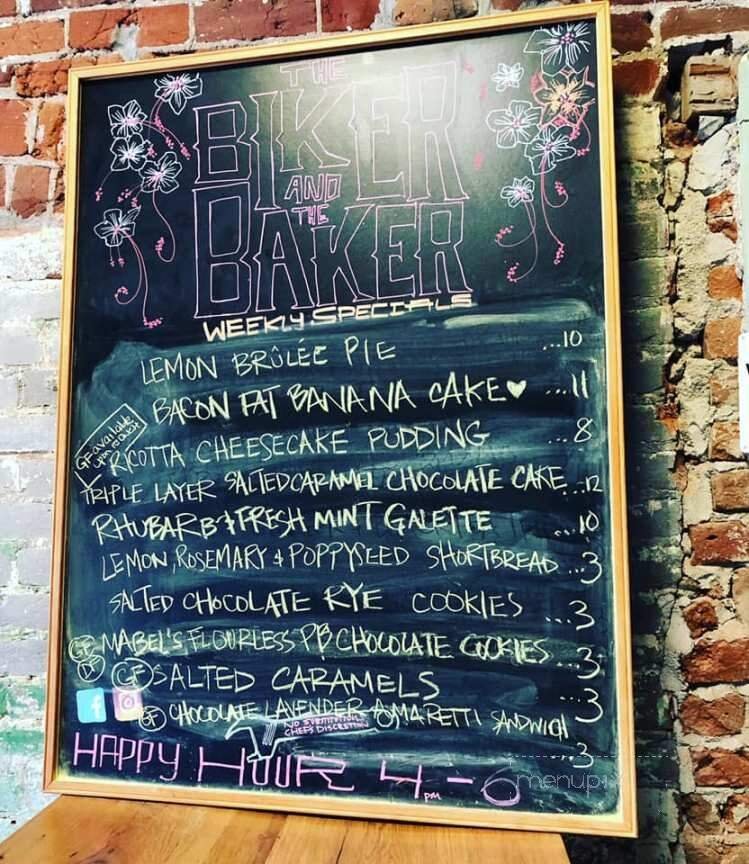 THE
BIKER
AND
THE
BAKER
WEEKLY SPECIALS
LEMON BRÛLÉE PIE ...10
BACON FAT BANANA CAKE♥ ...11
GF available upon request
RICOTTA CHEESECAKE PUDDING ...8
TRIPLE LAYER SALTED CARAMEL CHOCOLATE CAKE...12
RHUBARB & FRESH MINT GALETTE ...10
LEMON, ROSEMARY & POPPYSEED SHORTBREAD ...3
SALTED CHOCOLATE RYE COOKIES ...3
GF DF MABEL'S FLOURLESS PB CHOCOLATE COOKIES ...3
GF SALTED CARAMELS ...3
GF CHOCOLATE LAVENDER AMARETTI SANDWICH ...3
NO SUBSTITUTIONS
CHEF'S DISCRETION
HAPPY HOUR 4-6
pm
menupix